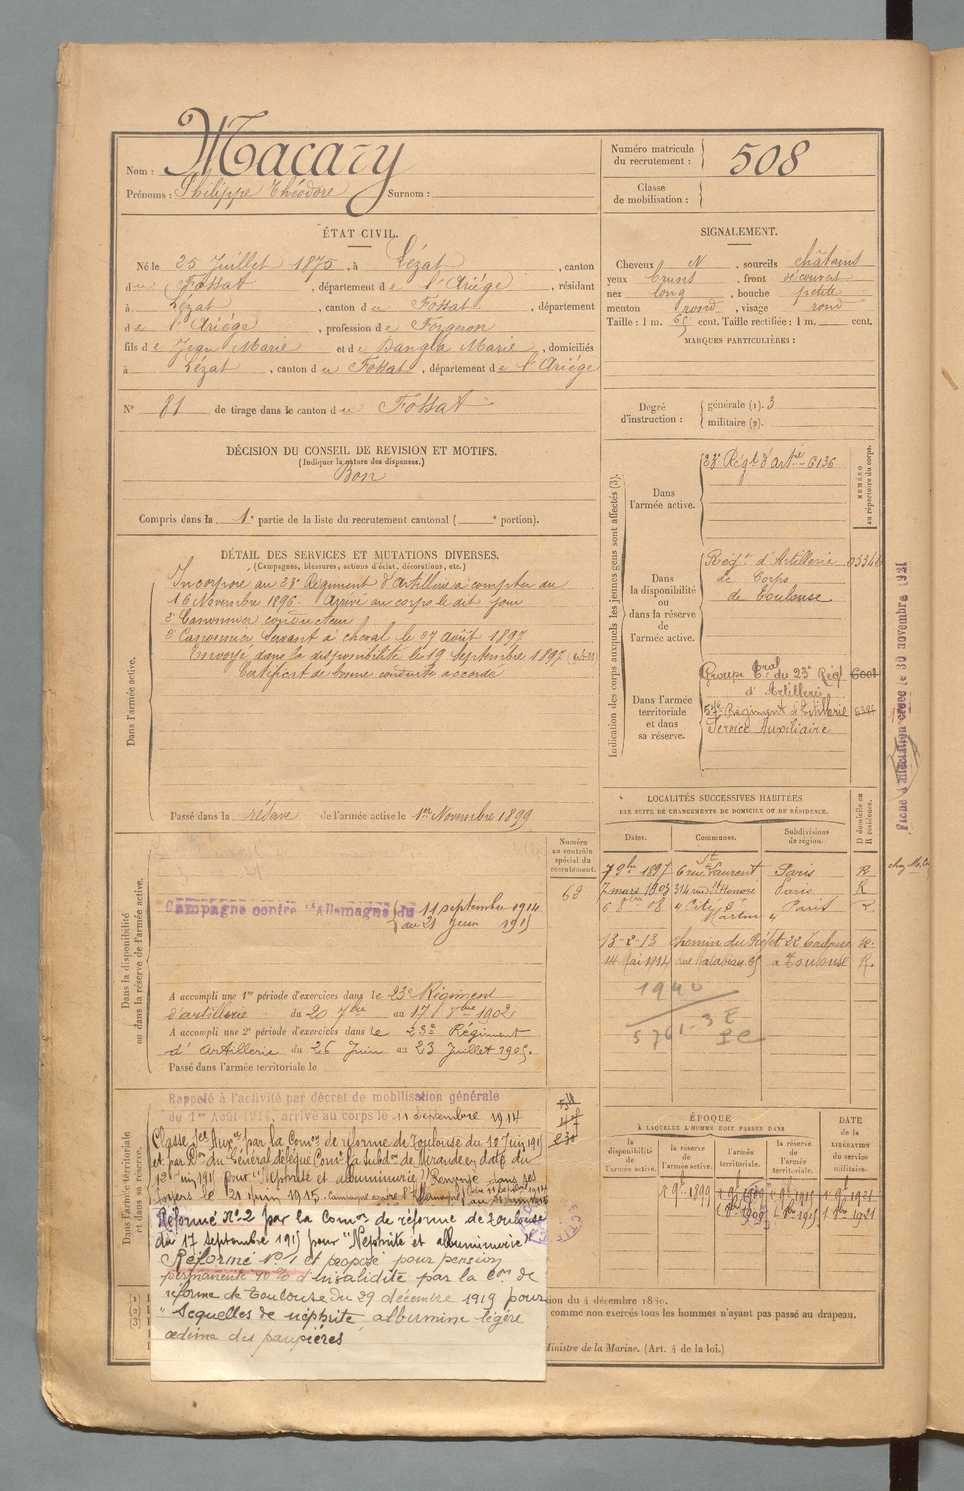 Nom : Macary
Prénoms : Philippe Théodore Surnom :
Numéro matricule du recrutement : 508
Classe de mobilisation :
ÉTAT CIVIL.
Né le 25 Juillet 1875, à Lézat, canton
du Fossat, département de l'Ariège, résidant
à Lézat, canton du Fossat, département
de l'Ariège, profession de Forgeron
fils de Jean Marie et de Dangla Marie, domiciliés
à Lézat, canton du Fossat, département de l'Ariège
N° 81 de tirage dans le canton du Fossat
SIGNALEMENT.
Cheveux N, sourcils châtains
yeux bruns, front découvert
nez long, bouche petite
menton rond, visage rond
Taille : 1 m. 65 cent. Taille rectifiée : 1 m. cent.
MARQUES PARTICULIÈRES :
Degré d'instruction : générale (1). 3
militaire (2).
DÉCISION DU CONSEIL DE REVISION ET MOTIFS.
(Indiquer la nature des dispenses.)
Bon
Compris dans la 1e partie de la liste du recrutement cantonal ( e portion).
DÉTAIL DES SERVICES ET MUTATIONS DIVERSES.
(Campagnes, blessures, actions d'éclat, décorations, etc.)
Dans l'armée active.
Incorporé au 23e Régiment d'artillerie à compter du
16 Novembre 1896. Arrivé au corps le dit jour
2e Canonnier conducteur
2e Canonnier servant à cheval le 27 août 1897
Envoyé dans la disponibilité le 19 Septembre 1897
Certificat de bonne conduite accordé
Passé dans la réserve de l'armée active le 1er Novembre 1899
Indication des corps auxquels les jeunes gens sont affectés (3).
NUMÉRO au répertoire du corps.
Dans l'armée active.
23e Régt d'artrie 6136
Dans la disponibilité ou dans la réserve de l'armée active.
Régt d'Artillerie
de Corps
de Toulouse
Dans l'armée territoriale et dans sa réserve.
Groupe tral du 23e Régt 6001
d'Artillerie
57e Régiment d'Artillerie
Service Auxiliaire
Fiche d'affectation créée le 30 novembre 1921
Dans la disponibilité ou dans la réserve de l'armée active.
Numéro au contrôle spécial du recrutement.
Campagne contre l'Allemagne du 11 septembre 1914
au 21 juin 1915
A accompli une 1re période d'exercices dans le 23e Régiment
d'artillerie du 20 7bre au 17 8bre 1902
A accompli une 2e période d'exercices dans le 23e Régiment
d'Artillerie du 26 Juin au 23 Juillet 1905.
Passé dans l'armée territoriale le
LOCALITÉS SUCCESSIVES HABITÉES
PAR SUITE DE CHANGEMENTS DE DOMICILE OU DE RÉSIDENCE.
Dates. Communes. Subdivisions de région. D domicile ou R résidence.
7 9bre 1897 6 rue St Laurent Paris R
7 mars 1903 314 rue St Honoré Paris R
08 4 Cité St Martin Paris
13-2-13 22 Toulouse R.
14 Mai 1914 à Toulouse R.
1940
Dans l'armée territoriale et dans sa réserve.
Rappelé à l'activité par décret de mobilisation générale
du 1er Août 1914, arrivé au corps le 11 Septembre 1914
Classé Sce Auxre par la Comon de réforme de Toulouse du 18 Juin 1915
et par Don du Général délégué Comt la Subdon de Mirande en date du
juin 1915 pour "Néphrite et albuminurie" Renvoyé dans ses
foyers le 21 juin 1915.
Réformé N°2 par la Comon de réforme de Toulouse
du 17 septembre 1915 pour "Néphrite et albuminurie"
Réformé N°1 et proposé pour pension
permanente 10% d'invalidité par la Con de
réforme de Toulouse du 29 décembre 1919 pour
"Sequelles de néphrite albumine légère
œdème des paupières
ÉPOQUE
À LAQUELLE L'HOMME DOIT PASSER DANS
la disponibilité de l'armée active. la réserve de l'armée active. l'armée territoriale. la réserve de l'armée territoriale.
DATE de la LIBÉRATION du service militaire.
comme non exercés tous les hommes n'ayant pas passé au drapeau.
Ministre de la Marine. (Art. 4 de la loi.)